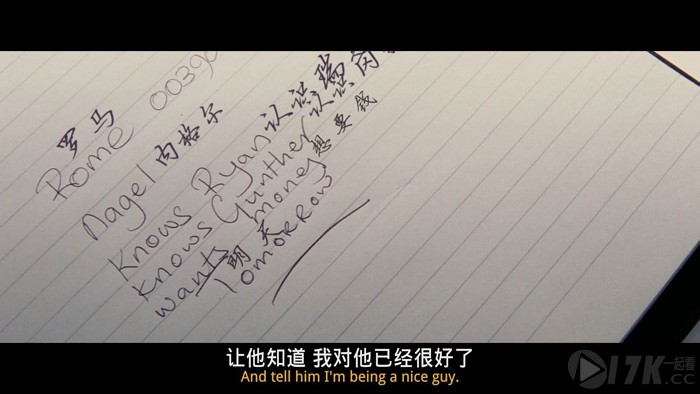 罗马
Rome 0039
Nagel 内格尔
knows Ryan 认识瑞
knows Gunther 认识
wants money 想要钱
明天
Tomorrow
让他知道 我对他已经很好了
And tell him I'm being a nice guy.
17K 一起看
.CC